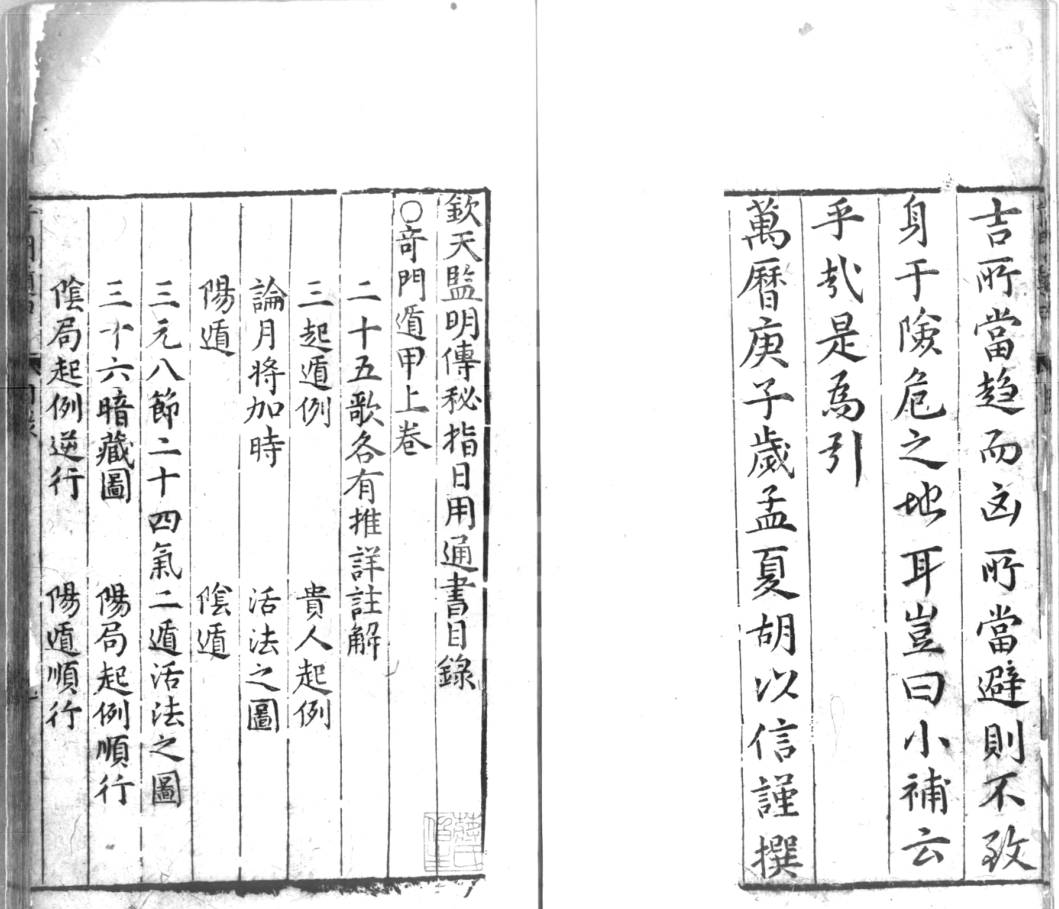 吉所當趋而凶所當避則不致
身于險危之地耳豈曰小補云
乎㢤是為引
萬曆庚子歲孟夏胡以信謹撰
欽天監明傳秘指日用通書目錄
○竒門遁甲上卷
二十五歌各有推詳註解
三起遁例 貴人起例
論月將加時 活法之圖
陽遁 陰遁
三元八節二十四氣二遁活法之圖
三十六暗藏圖 陽局起例順行
陰局起例逆行 陽遁順行